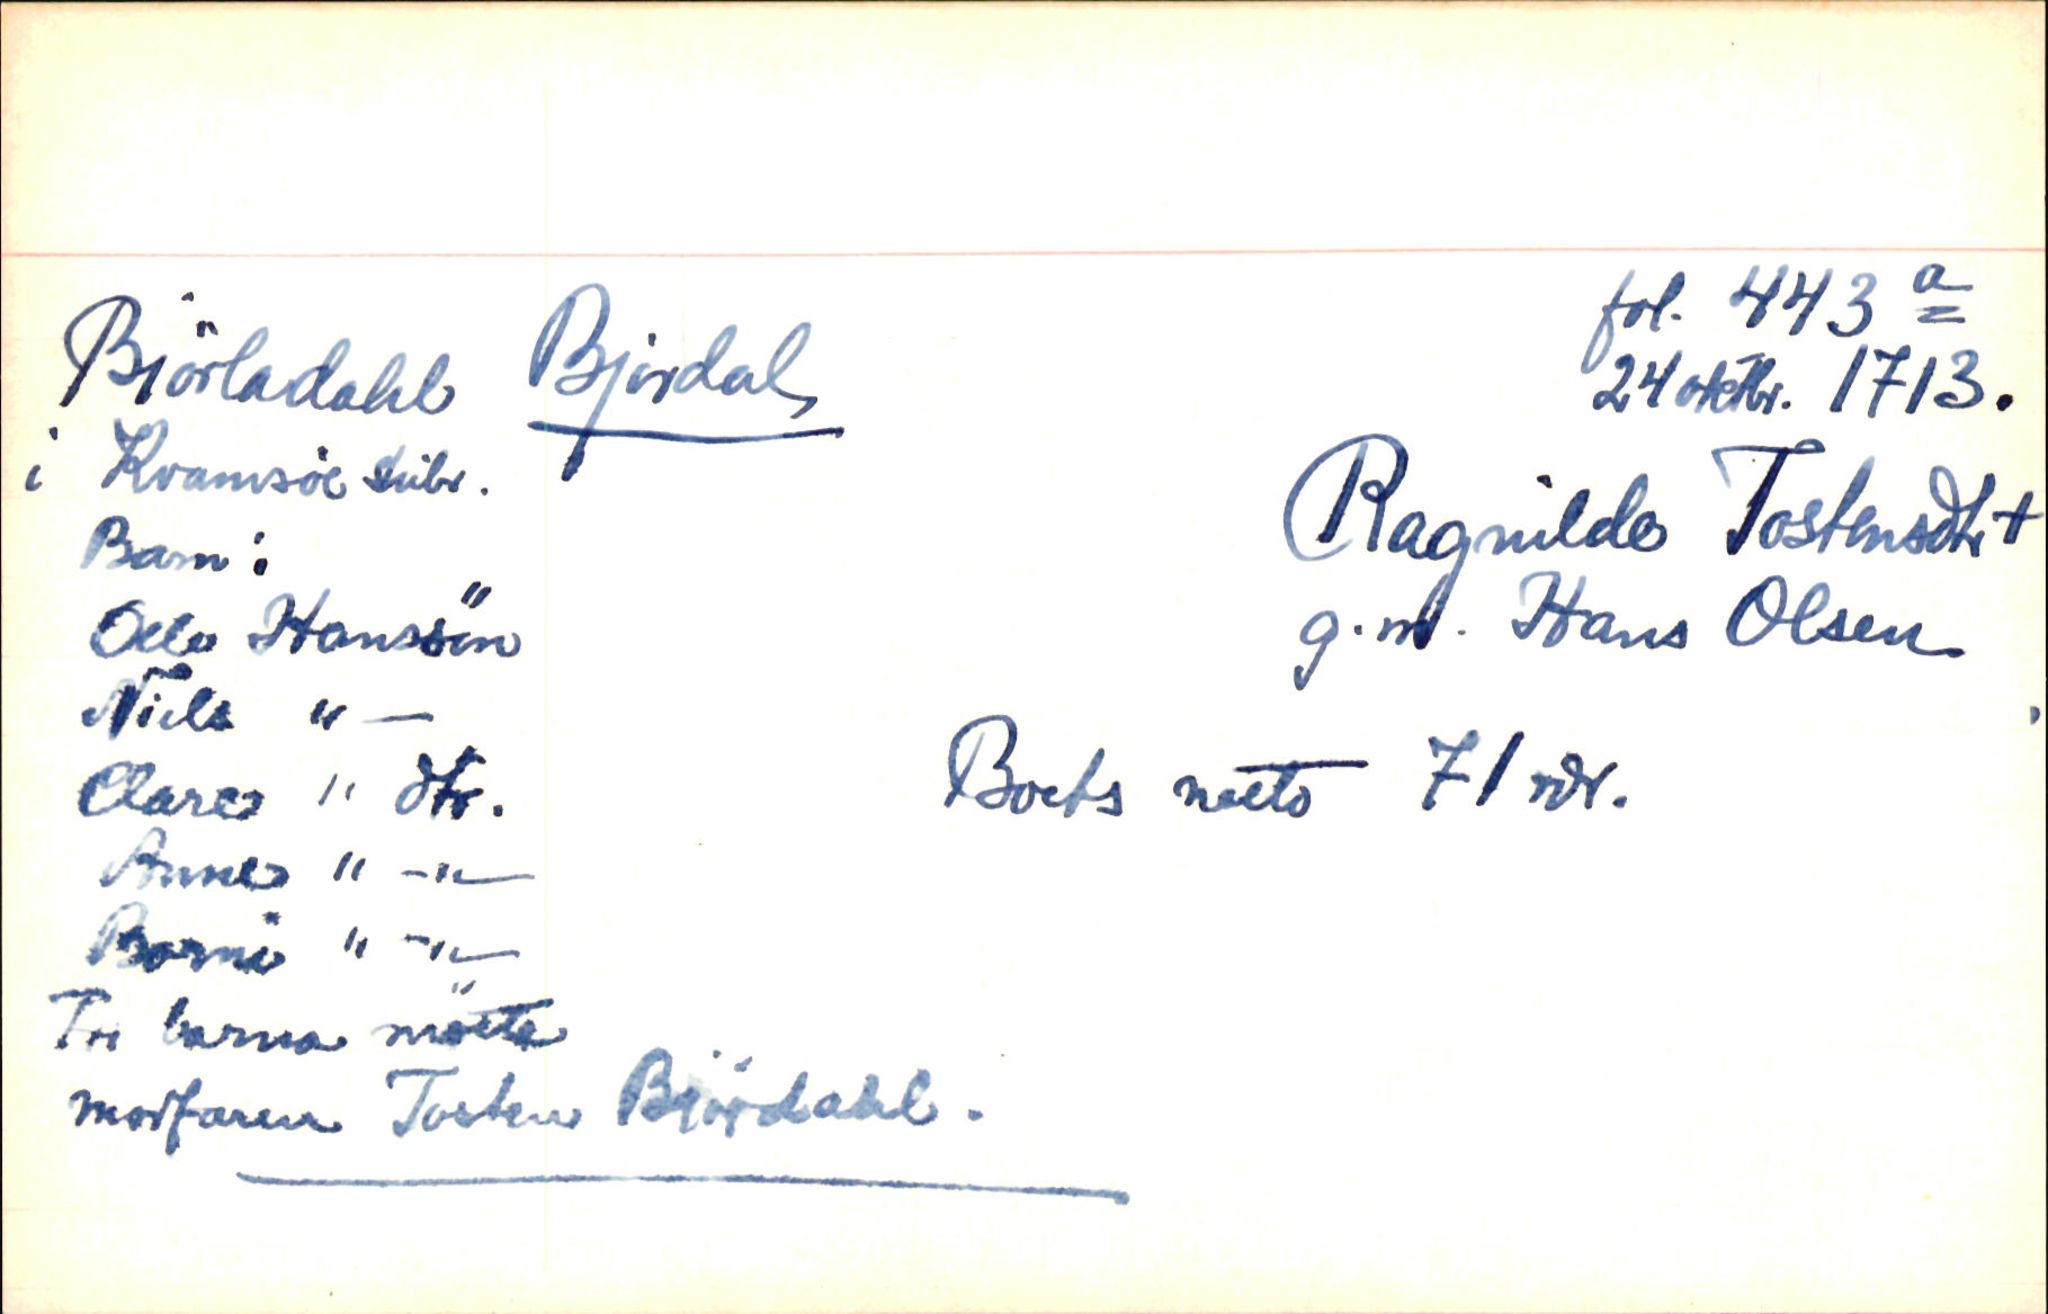 fol. 443 a
24 oktbr. 1713.
Björladahl Bjordal,
i Kvamsöe skibr.
Ragnilde Tostensdtr +
g.m. Hans Olsen
Barn:
Ole Hanssön
Niels " —
Boets netto 71 rdr.
Clare " dtr.
Anne " -"-
Borni " -"-
For barna mötte
morfaren Tosten Björdahl.